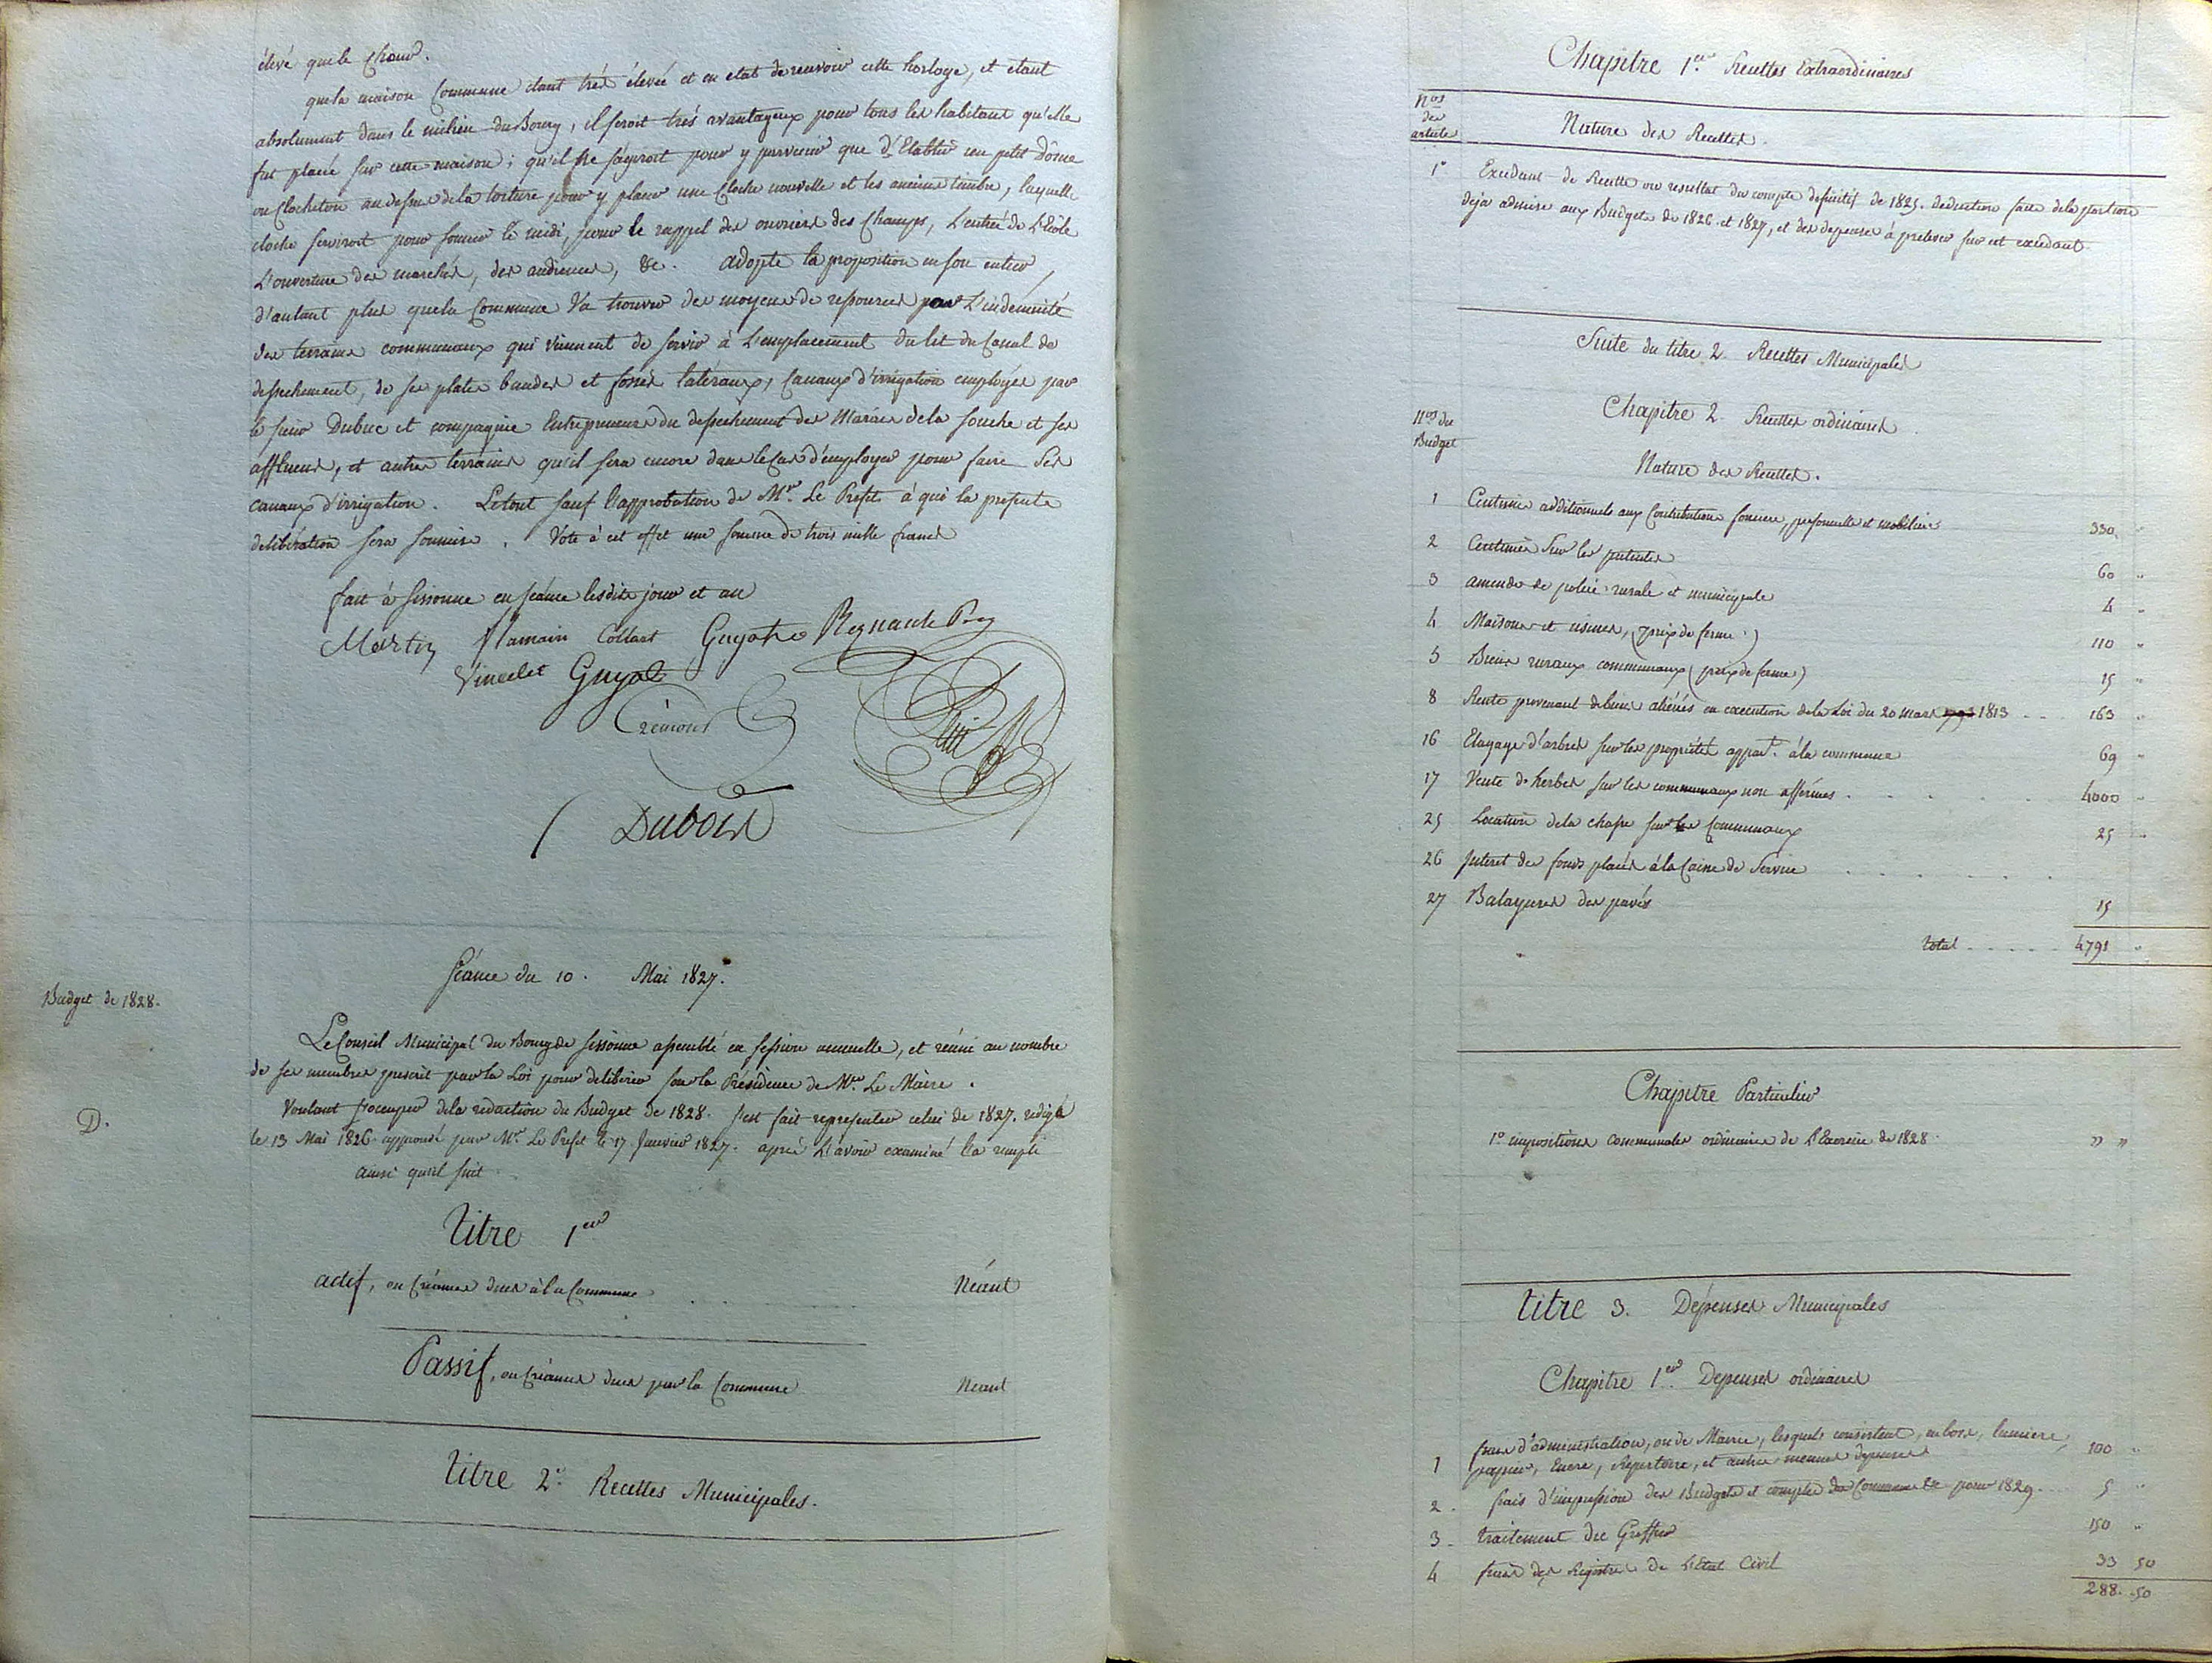 élevé que le Choeur.
que la maison Commune étant trés élevée et en etat de recevoir cette horloge, et etant
absolument dans le milieu du Bourg, il seroit trés avantageux pour tous les habitans qu'elle
fut placée sur cette maison; qu'il ne s'agiroit pour y parvenir que d'Etablir un petit Dôme
ou Clocheton au dessus de la toiture pour y placer une Cloche nouvelle et les anciens timbres, laquelle
cloche serviroit pour sonner le midi, pour le rappel des ouvriers des Champs, L'entrée de L'école
L'ouverture des marchés, des audiences, &c. adopte la proposition en son entier
d'autant plus que la Commune Va trouver des moyens de ressources pour L'indemnité
des terrains communaux qui viennent de servir à L'emplacement du lit du Canal de
dessechement, de ses plates bandes et fossés latéraux, Canaux d'irrigation employés par
le sieur Dubuc et compagnie Entrepreneurs du dessechement des Marais de la Souche et ses
affluens, et autres terrains qu'il sera encore dans le Cas d'employer pour faire Ses
canaux d'irrigation. Le tout sauf l'approbation de Mr. Le Prefet à qui la presente
deliberation sera soumise. Vote à cet effet une somme de trois mille francs
fait à Sissonne en séance lesdits jour et an
Martin Collart Guyot Regnault
Vincelet Guyot
Cremont Petit
Dubois
Séance du 10. Mai 1827.
Budget de 1828.
Le Conseil Municipal du Bourg de Sissonne assemblé en session annuelle, et réuni au nombre
de ses membres prescrit par la Loi pour deliberer sous la Présidence de Mr. Le Maire.
D.
Voulant s'occuper de la redaction du Budget de 1828. s'est fait representer celui de 1827. redigé
le 13 Mai 1826. approuvé par Mr. Le Prefet le 17 Janvier 1827. aprés L'avoir examiné l'a rempli
ainsi qu'il suit
Titre 1er
actif, ou Créances dues à la Commune . . . Néant
Passif, ou Créances dues par la Commune Néant
Titre 2e. Recettes Municipales.
Chapitre 1er. Recettes Extraordinaires
Nos
des
articles
Nature des Recettes.
1° Excedant de Recette ou resultat du compte definitif de 1825. deduction faite de la portion
deja admise aux Budgets de 1826 et 1827, et des depenses à prelever sur cet excedant.
Suite du titre 2. Recettes Municipales
Chapitre 2. Recettes ordinaires
Nos du
Budget
Nature des Recettes.
1 Centimes additionnels aux Contributions fonciere, personnelle et mobiliere 330 "
2 Centimes Sur les patentes 60 "
3 amendes de police rurale et municipale 4 "
4 Maisons et usines, (prix de ferme) 110 "
5 Biens ruraux communaux (prix de ferme) 15 "
8 Rente provenant de biens aliénés en execution de la Loi du 20 mars 1813 . . . 163 "
16 Elagage d'arbres sur les propriétés appart. à la commune 69 "
17 Vente d'herbes sur les communaux non affermés . . . . . 4000 "
25 Location de la chasse sur les Communaux 25 "
26 Interet des fonds placés à la Caisse de Service . . . . . . .
27 Balayures des pavés 15
total . . . . . 4791 "
Chapitre Particulier
1° impositions communales ordinaires de L'Exercice de 1828. " "
titre 3. Dépenses Municipales
Chapitre 1er. Depenses ordinaires
1 frais d'administration, ou de Mairie, lesquels consistent, en bois, lumiere,
papier, Encre, Repertoire, et autres menues depenses 100 "
2. frais d'impression des Budgets et comptes des Communes &c pour 1829. 5 "
3. traitement du Greffier 150 "
4 frais des Registres de L'Etat Civil 33 50
288. 50